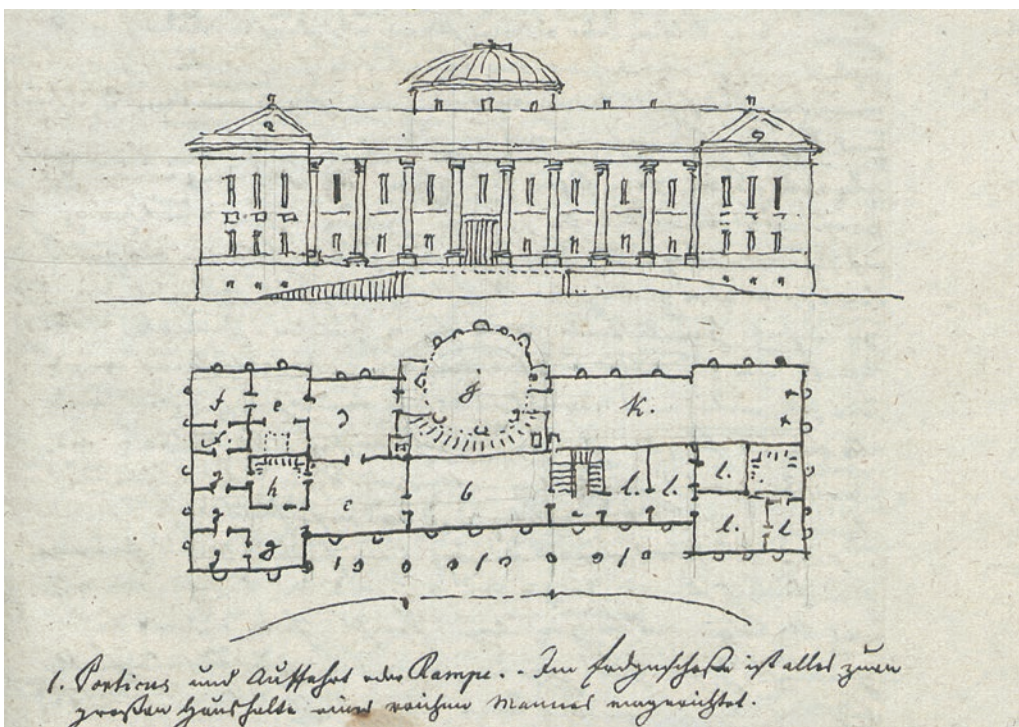 f e d g k.
h l.
g c b l. l. l. l
g g
1. Porticus und Auffahrt oder Rampe. - Im Erdgeschosse ist alles zum
großen Haushalte eines reichen Mannes eingerichtet.